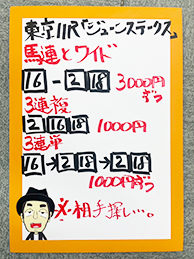 東京11R「ジューンステークス」
馬連とワイド
16-2 18 3000円ずつ
3連複
2 16 18 1000円
3連単
16→2 18→2 18
1000円ずつ
相手探し…。